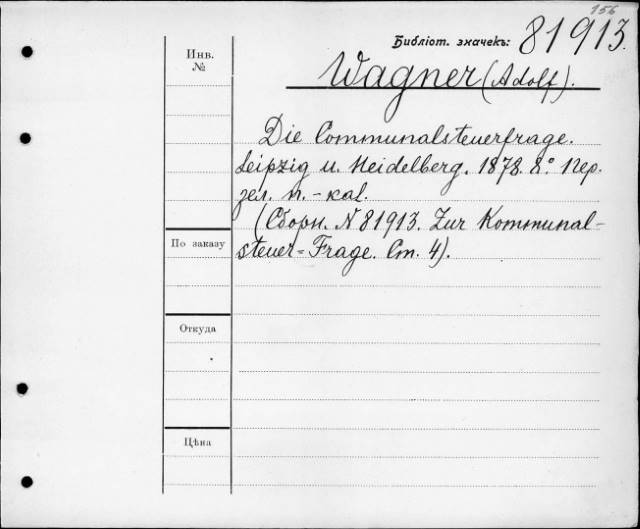 156
Библіот. значекъ: 81913.
Инв.
№
Wagner (Adolf).
Die Communalsteuerfrage.
Leipzig u. Heidelberg. 1878. 8º. Пер.
зел. п.-кал.
(Сборн. N 81913. Zur Kommunal-
steuer=Frage. Ст. 4).
По заказу
Откуда
Цѣна